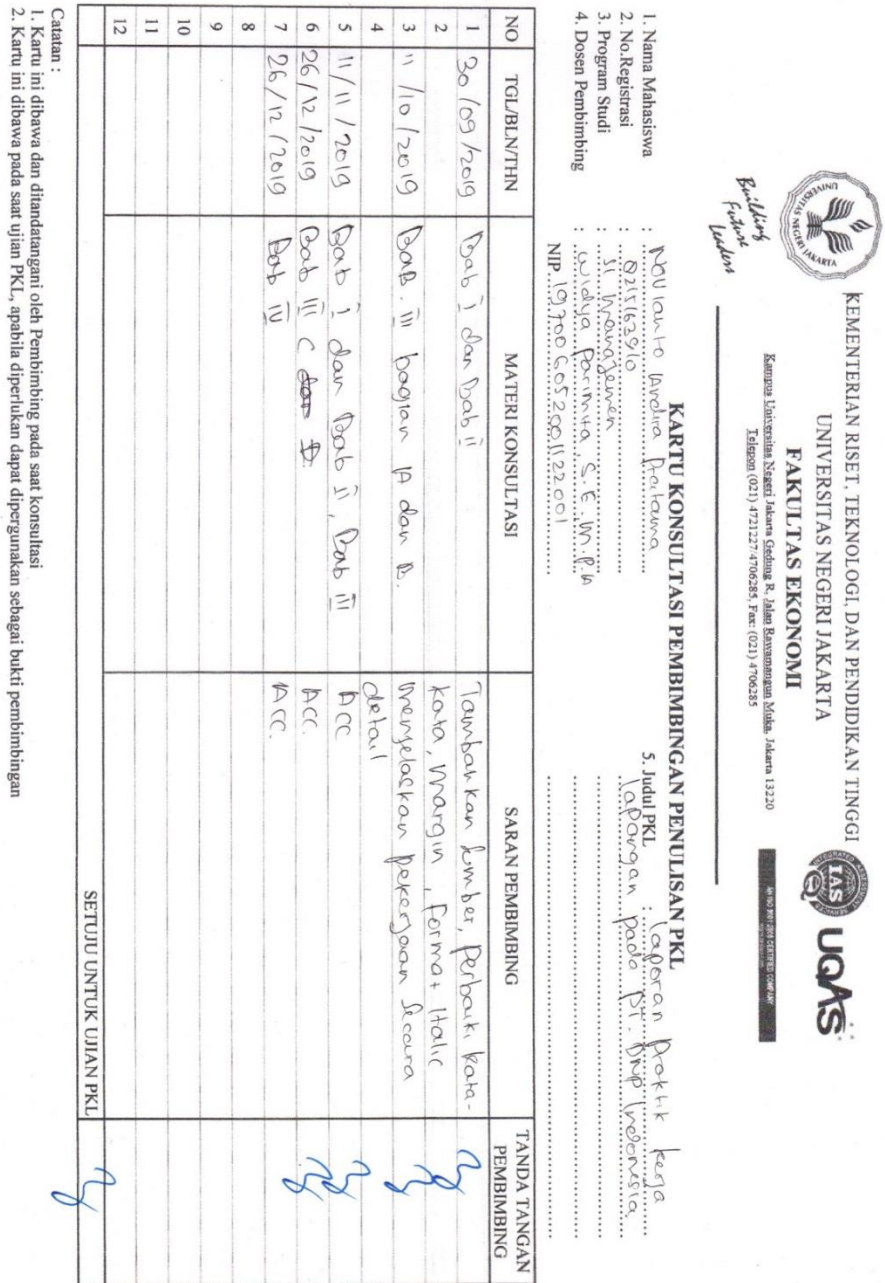 KEMENTERIAN RISET, TEKNOLOGI, DAN PENDIDIKAN TINGGI
UNIVERSITAS NEGERI JAKARTA
FAKULTAS EKONOMI
Kampus Universitas Negeri Jakarta Gedung R, Jalan Rawamangun Muka, Jakarta 13220
Telepon (021) 4721227/4706285, Fax: (021) 4706285
UNIVERSITAS NEGERI JAKARTA
Building
Future
Leaders
IAS
UQAS
KARTU KONSULTASI PEMBIMBINGAN PENULISAN PKL
1. Nama Mahasiswa : Novianto Andira Pratama
2. No.Registrasi : 8215163910
3. Program Studi : S1 Manajemen
4. Dosen Pembimbing : Widya Parimita, S.E, M.P.A
NIP. 197006052001122001
5. Judul PKL : Laporan Praktik Kerja
Lapangan pada PT. BNP Indonesia
NO TGL/BLN/THN MATERI KONSULTASI SARAN PEMBIMBING TANDA TANGAN PEMBIMBING
1 30/09/2019 Bab I dan Bab II Tambahkan Sumber, Perbaiki kata-
2 kata, margin, Format Italic
3 11/10/2019 BAB. III bagian A dan B. menjelaskan pekerjaan secara
4 detail
5 11/11/2019 Bab I dan Bab II, Bab III ACC
6 26/12/2019 Bab III C dan D. ACC.
7 26/12/2019 Bab IV ACC.
8
9
10
11
12
SETUJU UNTUK UJIAN PKL
Catatan :
1. Kartu ini dibawa dan ditandatangani oleh Pembimbing pada saat konsultasi
2. Kartu ini dibawa pada saat ujian PKL, apabila diperlukan dapat dipergunakan sebagai bukti pembimbingan